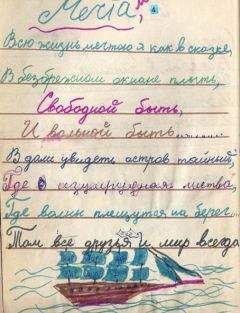 Мечта,
Всю жизнь мечтою я как в сказке,
В безбрежном океане плыть,
Свободной быть,
И вольной быть........
В дали увидеть остров тайный,
Где изумрудная листва,
Где волны плещутся на берег...
Там все друзья и мир всегда